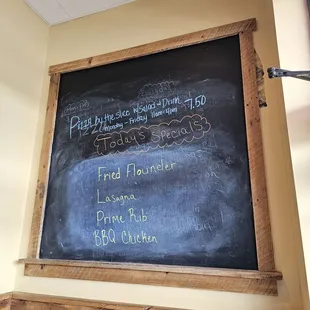 Pizza by the slice w/Salad + Drink
Monday - Friday 11am-4pm 7.50
Today's Specials
Fried Flounder
Lasagna
Prime Rib
BBQ Chicken